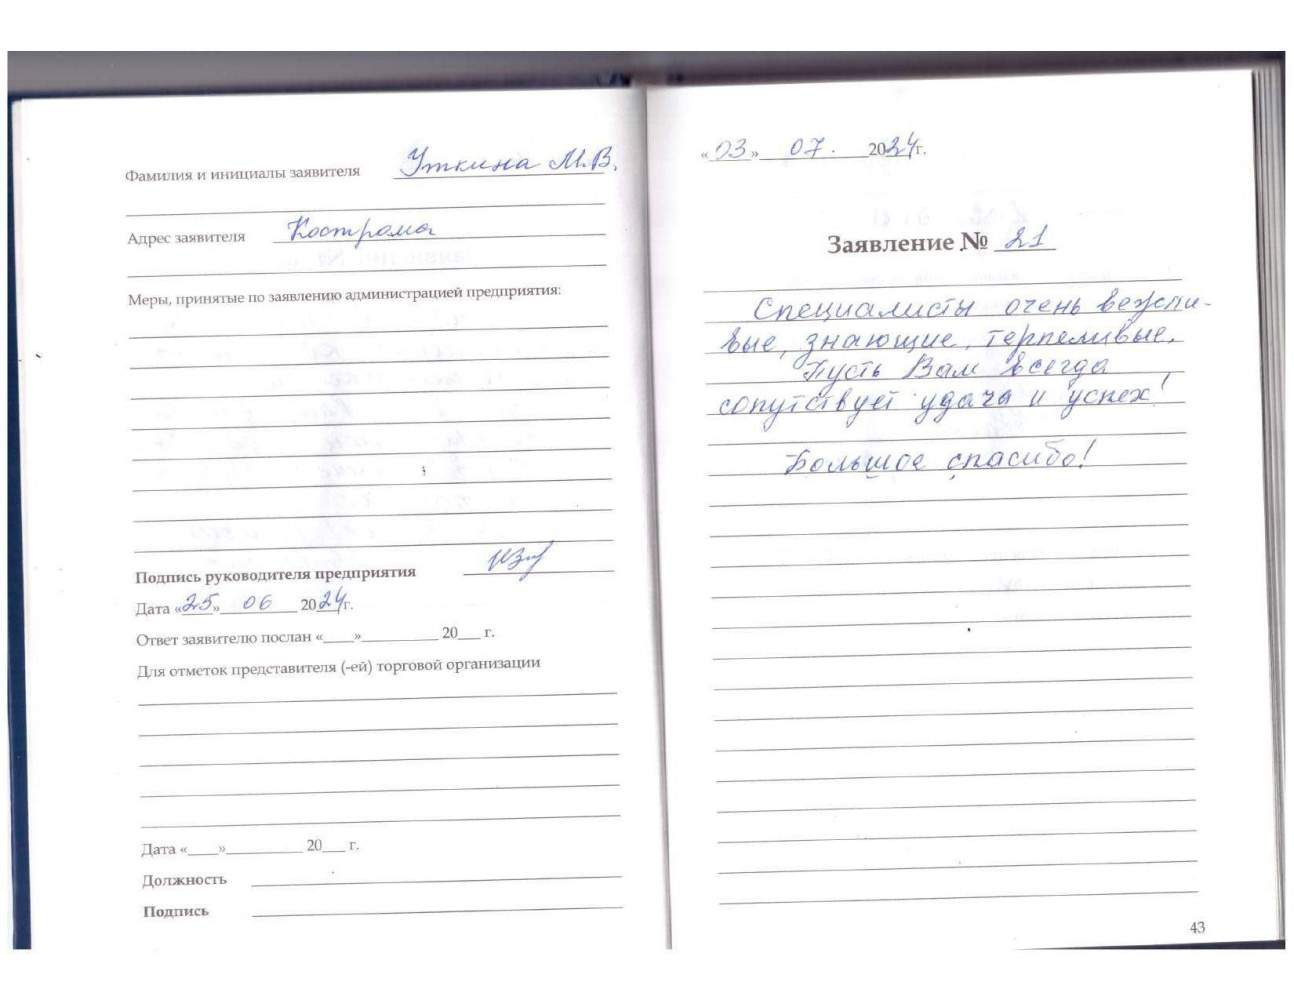 Фамилия и инициалы заявителя Уткина М.В.
Адрес заявителя Кострома
Меры, принятые по заявлению администрацией предприятия:
Подпись руководителя предприятия
Дата «25» 06 2024г.
Ответ заявителю послан «___»__________ 20___ г.
Для отметок представителя (-ей) торговой организации
Дата «____»__________ 20___ г.
Должность
Подпись
«03» 07. 2024г.
Заявление № 21
Специалисты очень вежли-
вые, знающие, терпеливые.
Пусть Вам всегда
сопутствует удача и успех!
Большое спасибо!
43